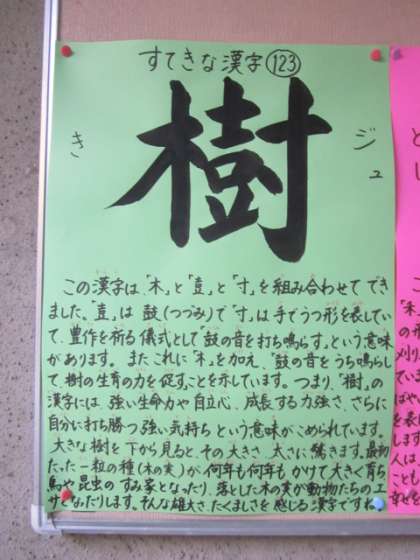 すてきな漢字 123
き
樹
ジュ
この漢字は、「木」と「壴」と「寸」を組み合わせてでき
ました。「壴」は鼓(つづみ)で「寸」は手でうつ形を表してい
て、豊作を祈る儀式として「鼓の音を打ち鳴らす」という意味
があります。またこれに「木」を加え、「鼓の音をうち鳴らし
て、樹の生育の力を促す」ことを示しています。つまり、「樹」の
漢字には、強い生命力や自立心、成長する力強さ、さらに
自分に打ち勝つ強い気持ちという意味がこめられています。
大きな樹を下から見ると、その大きさ、太さに驚きます。最初
たった一粒の種(木の実)が、何年も何年もかけて大きく育ち、
鳥や昆虫のすみ家となったり、落とした木の実が動物たちのエ
サとなったりします。そんな雄大さ、たくましさを感じる漢字ですね。